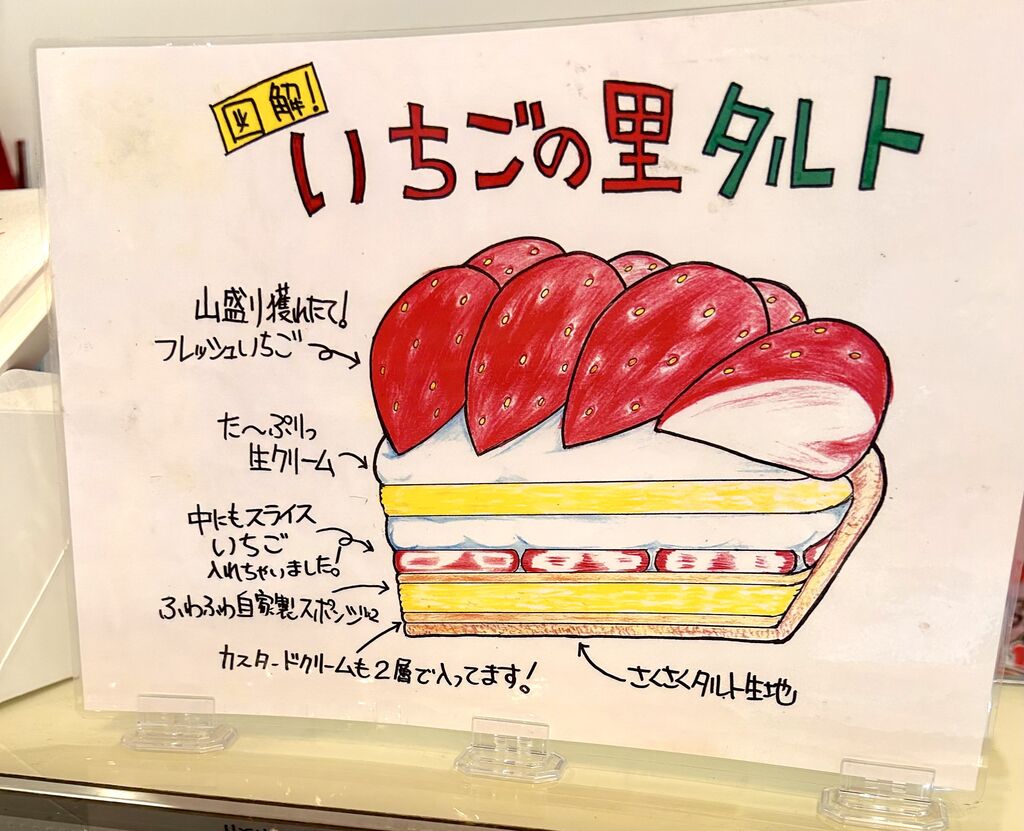 図解!
いちごの里タルト
山盛り獲れたて!
フレッシュいちご
た〜ぷりっ
生クリーム
中にもスライス
いちご
入れちゃいました!
ふわふわ自家製スポンジ×2
カスタードクリームも2層で入ってます!
さくさくタルト生地